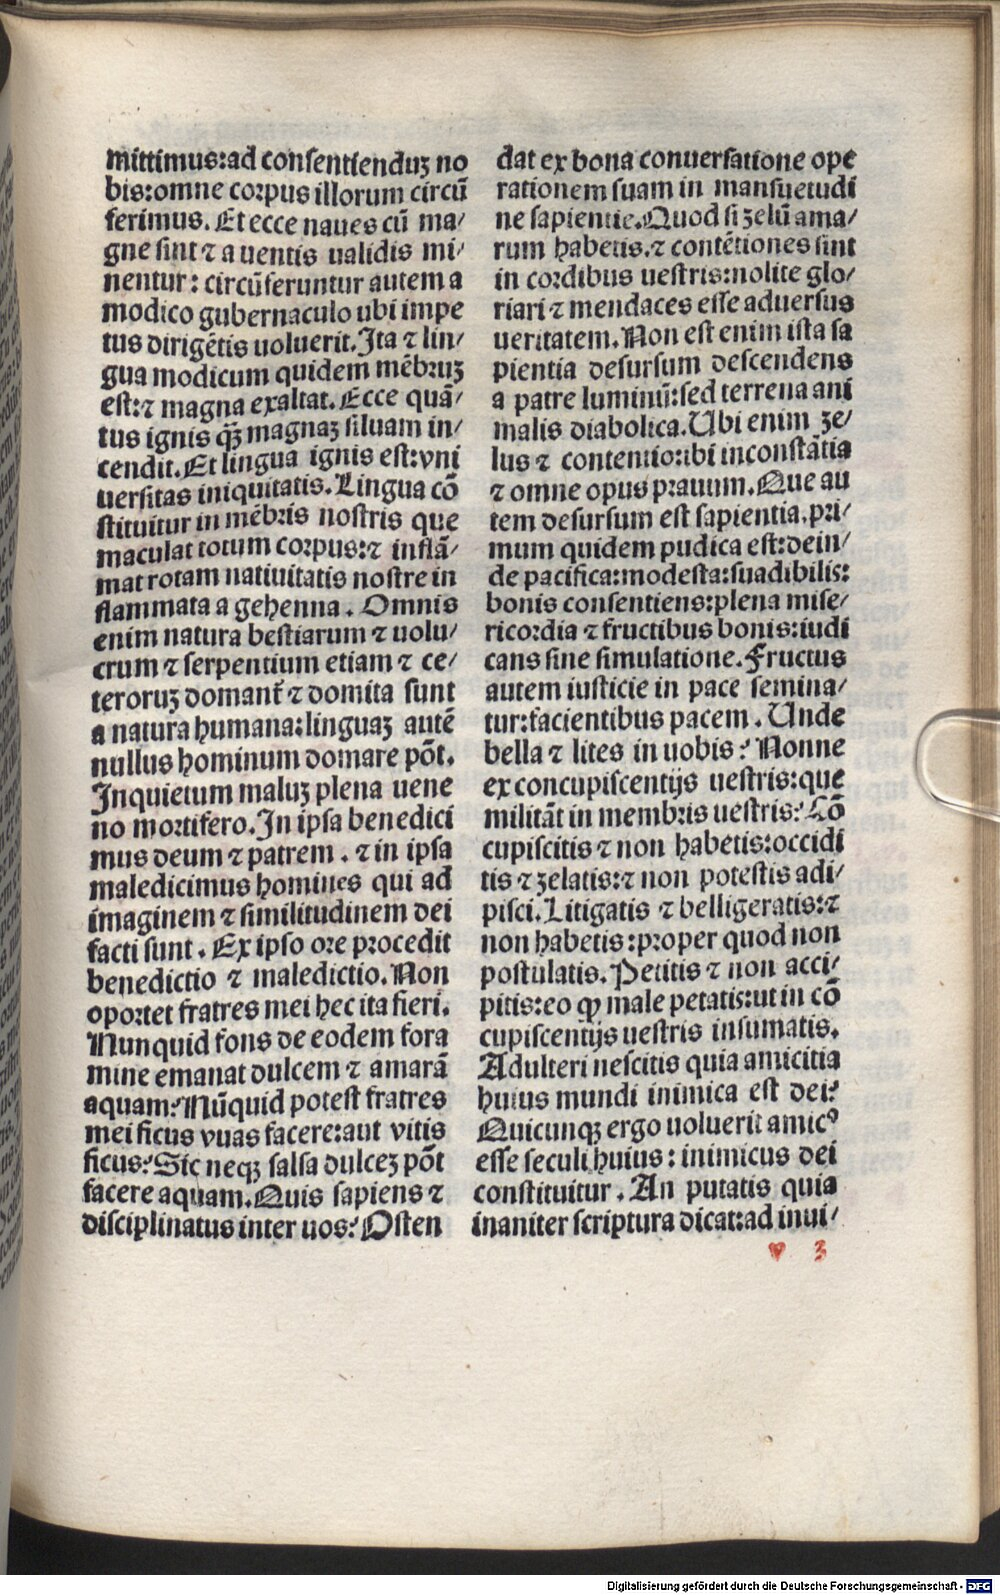 mittimus:ad consentienduꝫ no
bis:omne corpus illorum circū
ferimus. Et ecce naues cū ma/
gne sint ⁊ a uentis ualidis mi/
nentur: circūferuntur autem a
modico gubernaculo ubi impe
tus dirigētis uoluerit. Ita ⁊ lin/
gua modicum quidem mēbruꝫ
est:⁊ magna exaltat. Ecce quā/
tus ignis qꝫ̄ magnaꝫ siluam in/
cendit. Et lingua ignis est:vni
uersitas iniquitatis. Lingua cō
stituitur in mēbris nostris que
maculat totum corpus:⁊ inflā/
mat rotam natiuitatis nostre in
flammata a gehenna. Omnis
enim natura bestiarum ⁊ uolu/
crum ⁊ serpentium etiam ⁊ ce/
teroruꝫ domant᷑ ⁊ domita sunt
a natura humana:linguaꝫ autē
nullus hominum domare pōt.
Inquietum maluꝫ plena uene
no mortifero. In ipsa benedici
mus deum ⁊ patrem. ⁊ in ipsa
maledicimus homines qui ad
imaginem ⁊ similitudinem dei
facti sunt. Ex ipso ore procedit
benedictio ⁊ maledictio. Non
oportet fratres mei hec ita fieri.
Nunquid fons de eodem fora
mine emanat dulcem ⁊ amarā
aquam? Nūquid potest fratres
mei ficus vuas facere:aut vitis
ficus? Sic neqꝫ salsa dulceꝫ pōt
facere aquam. Quis sapiens ⁊
disciplinatus inter uos? Osten
dat ex bona conuersatione ope
rationem suam in mansuetudi
ne sapientie. Quod si ꝫelū ama/
rum habetis.⁊ contētiones sint
in cordibus uestris:nolite glo/
riari ⁊ mendaces esse aduersus
ueritatem. Non est enim ista sa
pientia desursum descendens
a patre luminū:sed terrena ani
malis diabolica. Ubi enim ze/
lus ⁊ contentio:ibi inconstātia
⁊ omne opus prauum. Que au
tem desursum est sapientia.pri/
mum quidem pudica est:dein/
de pacifica:modesta:suadibilis:
bonis consentiens:plena mise/
ricordia ⁊ fructibus bonis:iudi
cans sine simulatione. Fructus
autem iusticie in pace semina/
tur:facientibus pacem. Unde
bella ⁊ lites in uobis? Nonne
ex concupiscentijs uestris:que
militāt in membris uestris? Cō
cupiscitis ⁊ non habetis:occidi
tis ⁊ zelatis:⁊ non potestis adi/
pisci. Litigatis ⁊ belligeratis:⁊
non habetis:proper quod non
postulatis. Petitis ⁊ non acci/
pitis:eo ꝙ male petatis:ut in cō
cupiscentijs uestris insumatis.
Adulteri nescitis quia amicitia
huius mundi inimica est dei?
Quicunqꝫ ergo uoluerit amicꝰ
esse seculi huius: inimicus dei
constituitur. An putatis quia
inaniter scriptura dicat:ad inui/
v 3
Digitalisierung gefördert durch die Deutsche Forschungsgemeinschaft - DFG